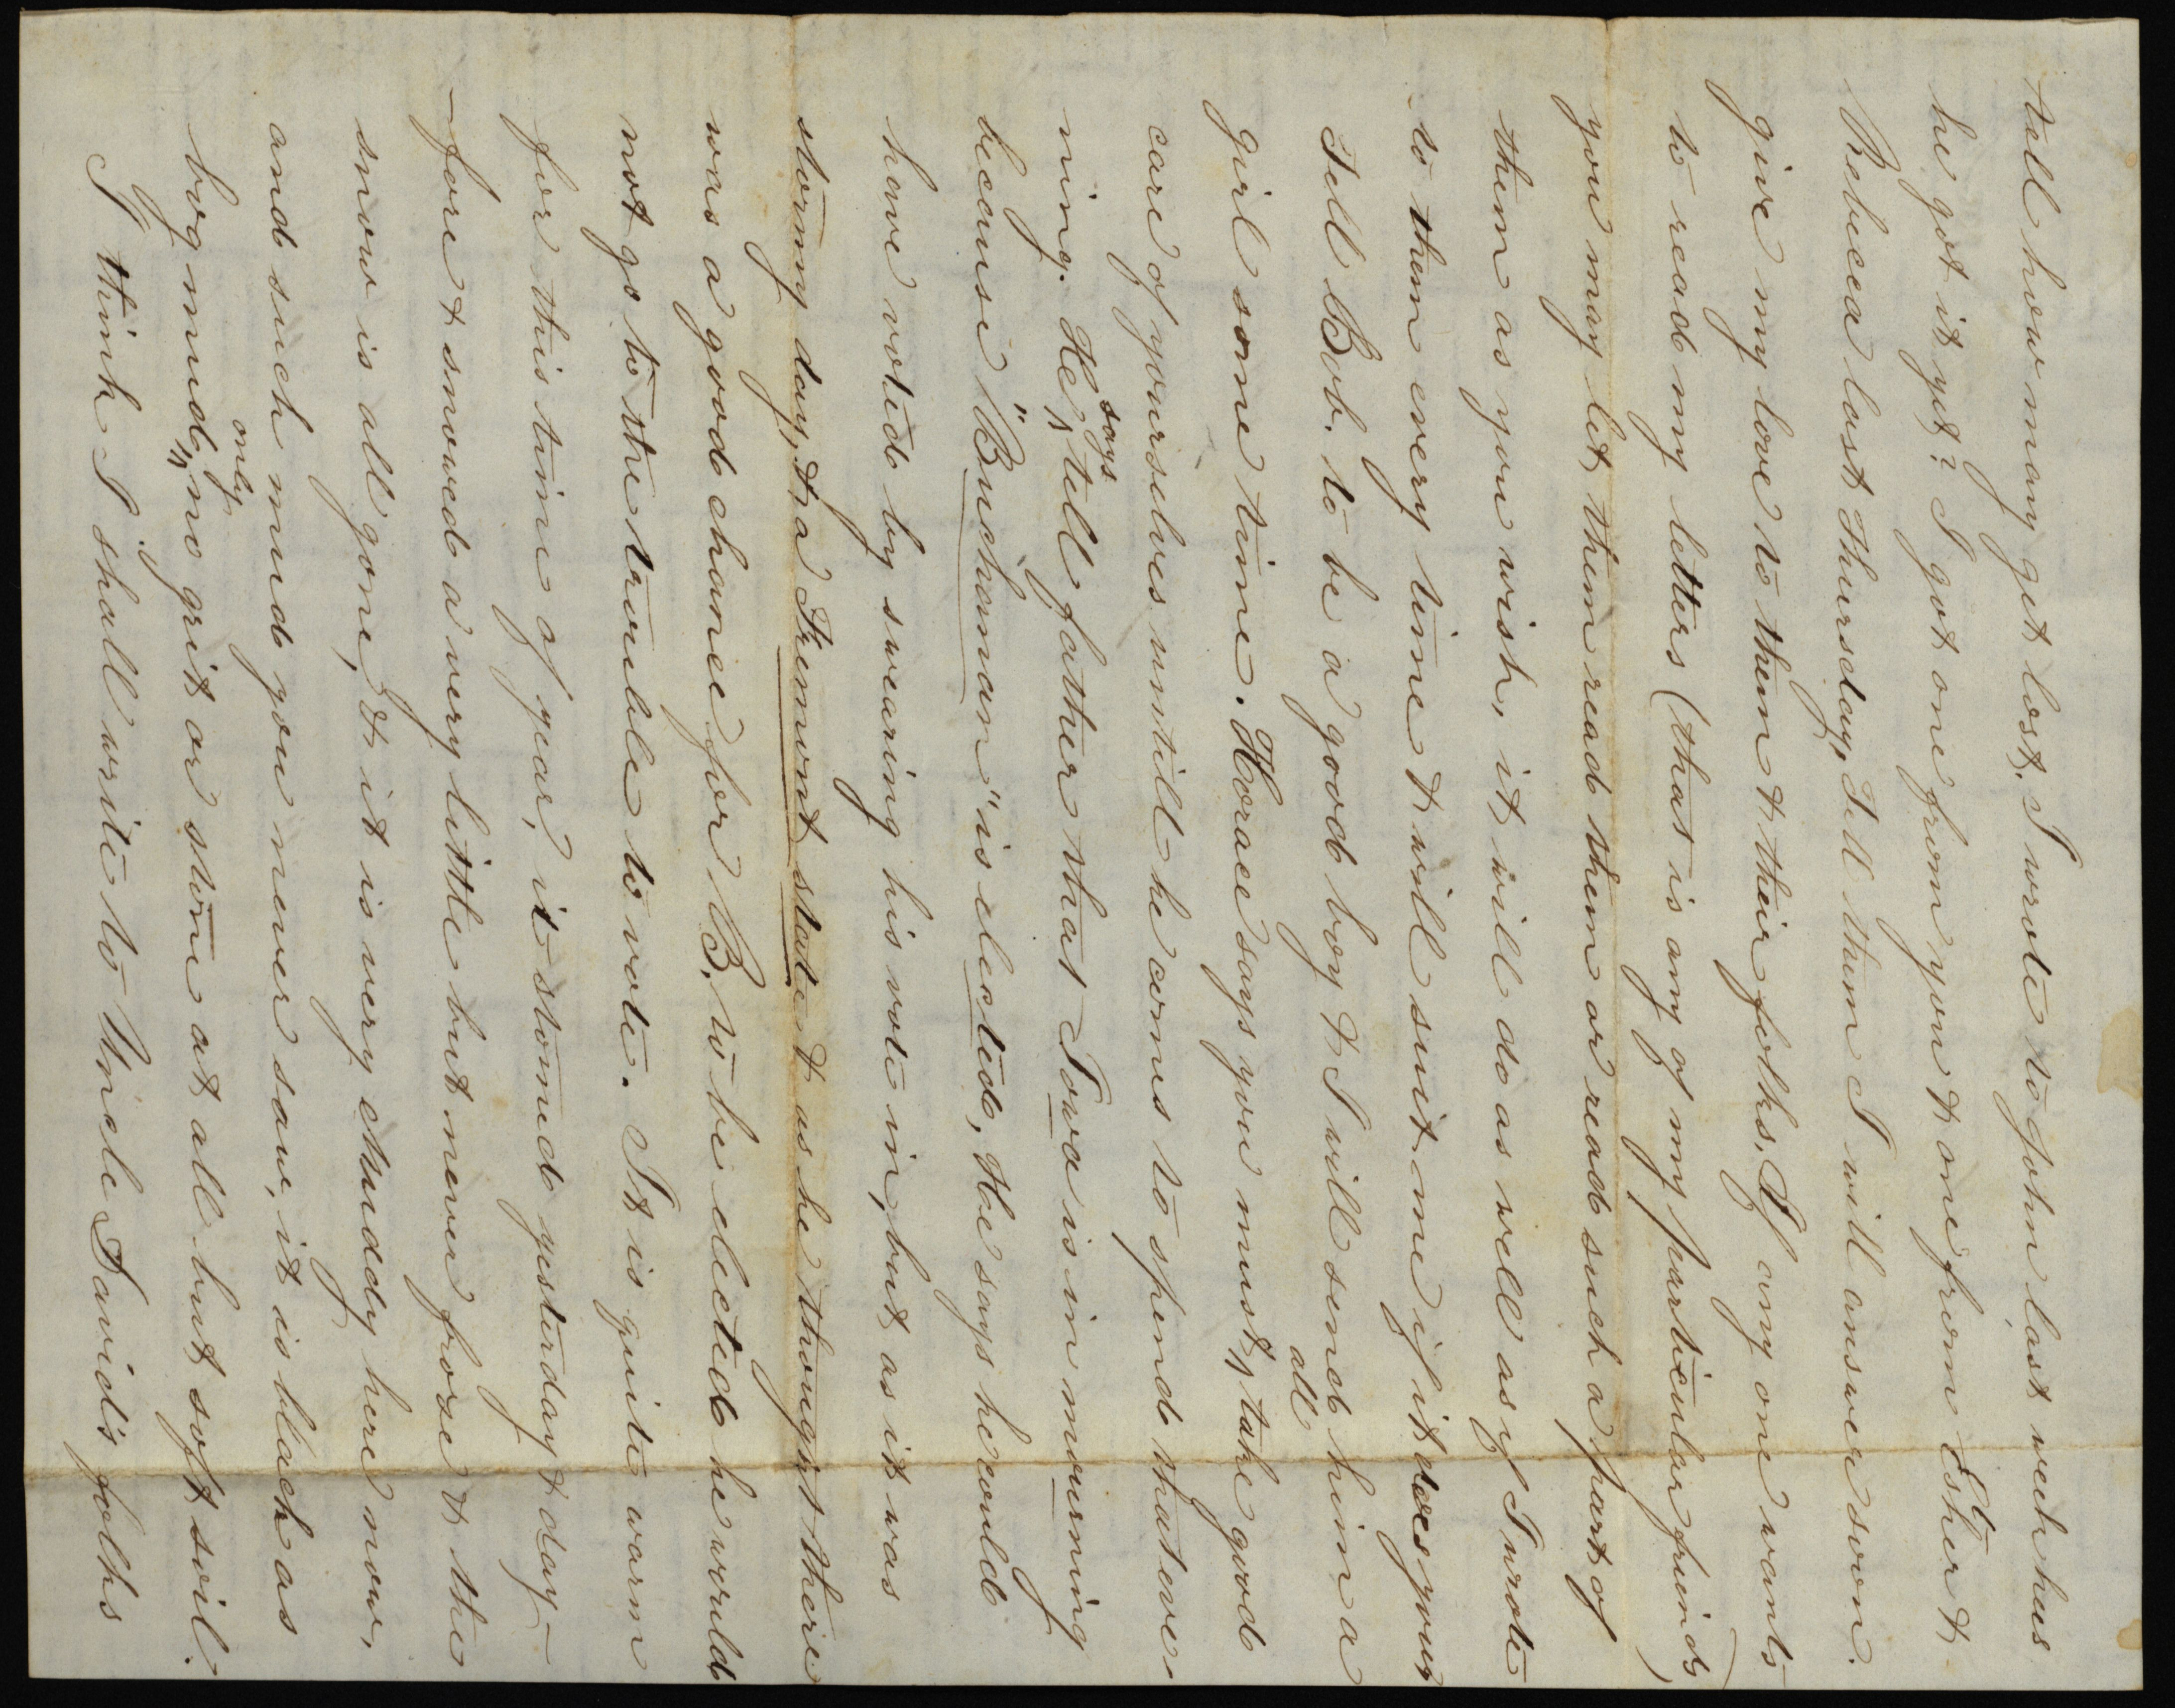 tell how many get lost. I wrote to John last week has
he got it yet? I got one from you & one from Esther &
Rebecca last Thursday, Tell them I will answer soon.
give my love to them & their folks. If any one wants
to read my letters (that is any of my particular friends)
you may let them read them or read such a part of
them as you wish, it will do as well as if I wrote
to them every time & will suit me if it does you
Tell Bob. to be a good boy & I will send him a
girl some time. Horace says you must all take good
care of yourselves untill he comes to spend that eve-
ning. He says tell father that Iowa is in mourning
because "Buchanan" is elected, He says he could
have voted by swearing his vote in, but as it was
stormy day, & a Fremont state & as he thought there
was a good chance for B. to be elected he would
not go to the trouble to vote. It is quite warm
for this time of year, it stormed yesterday & day-
-fore & snowed a very little but never froze & the
snow is all gone, & it is very Muddy here now,
and such mud you never saw, it is black as
bog mud, only no grit or stone at all but soft soil.
I think I shall write to Uncle David's folks